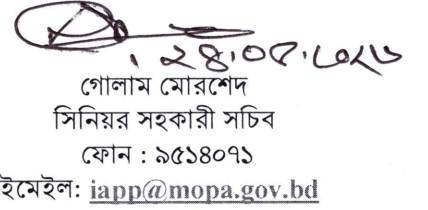 গোলাম মোরশেদ
সিনিয়র সহকারী সচিব
ফোন : ৯৫১৪০৭১
ইমেইল: iapp@mopa.gov.bd